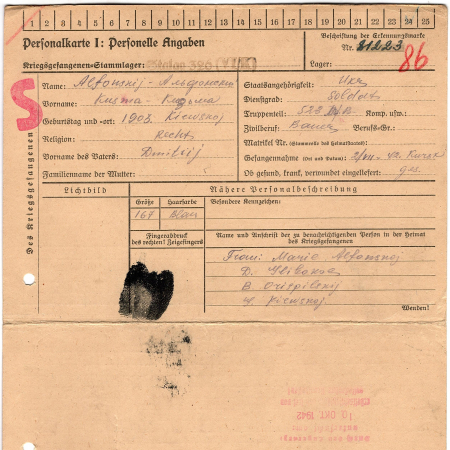 1 2 3 4 5 6 7 8 9 10 11 12 13 14 15 16 17 18 19 20 21 22 23 24 25
Personalkarte I: Personelle Angaben
Beschriftung der Erkennungsmarke
Nr. 81223
Kriegsgefangenen-Stammlager: Stalag 326 (VI/K)
Lager:
86
S
Des Kriegsgefangenen
Name: Alfonskij - Альфонский
Vorname: Kusma - Кузьма
Geburtstag und -ort: 1903. Kiewskoj
Religion: recht.
Vorname des Vaters: Dmitrij
Familienname der Mutter:
Staatsangehörigkeit: Ukr
Dienstgrad: Soldat
Truppenteil: 523 Komp. usw.:
Zivilberuf: Bauer Berufs-Gr.:
Matrikel Nr. (Stammrolle des Heimatstaates):
Gefangennahme (Ort und Datum): 42. Kursk
Ob gesund, krank, verwundet eingeliefert: ges.
Lichtbild
Nähere Personalbeschreibung
Größe
Haarfarbe
Besondere Kennzeichen:
167
Fingerabdruck
des rechten! Zeigefingers
Name und Anschrift der zu benachrichtigenden Person in der Heimat
des Kriegsgefangenen
Frau: Maria Alfonskoj
D.
B.
Kiewskoj
Wenden!
10. OKT 1942